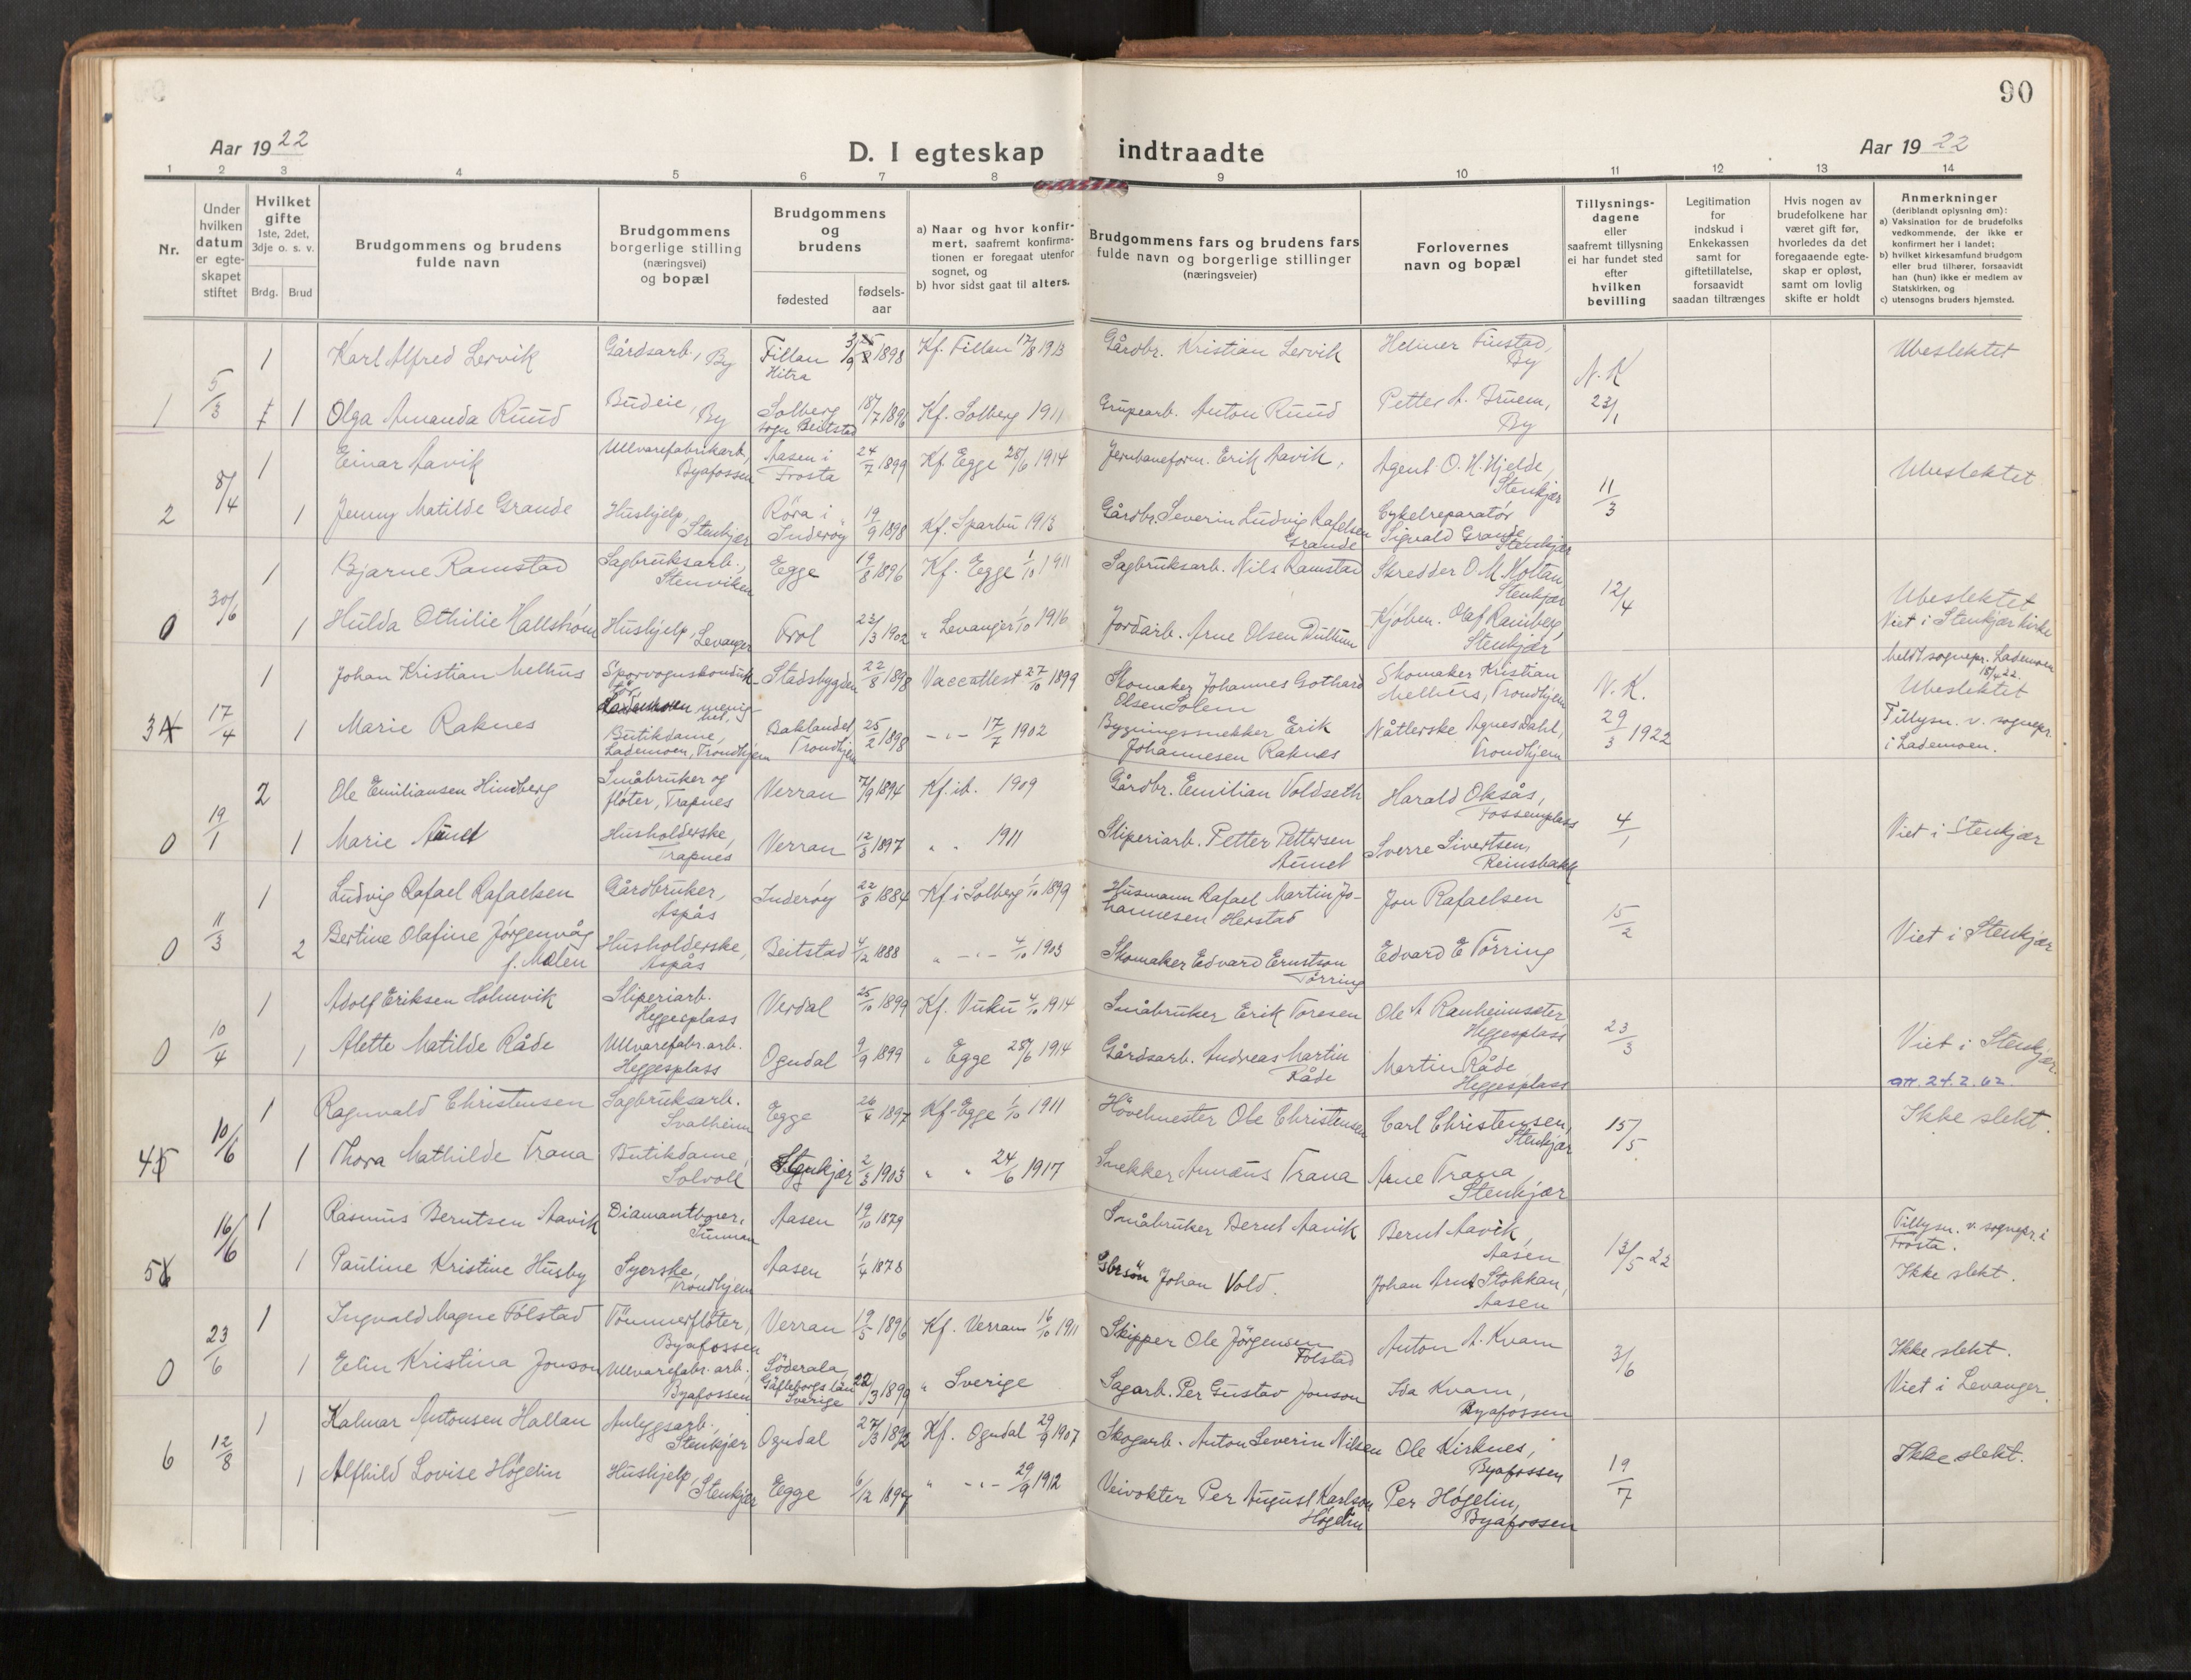 90
Aar 1922
D. I egteskap indtraadte
Aar 1922
1 2 3 4 5 6 7 8 9 10 11 12 13 14
Nr.
Under hvilken datum er egteskapet stiftet
Hvilket gifte
1ste, 2det, 3dje o. s. v.
Brdg. Brud
Brudgommens og brudens fulde navn
Brudgommens borgerlige stilling (næringsvei) og bopæl
Brudgommens og brudens
fødested
fødsels-aar
a) Naar og hvor konfirmert, saafremt konfirmationen er foregaat utenfor sognet, og
b) hvor sidst gaat til alters.
Brudgommens fars og brudens fars fulde navn og borgerlige stillinger (næringsveier)
Forlovernes navn og bopæl
Tillysningsdagene eller saafremt tillysning ei har fundet sted efter hvilken bevilling
Legitimation for indskud i Enkekassen samt for giftetillatelse, forsaavidt saadan tiltrænges
Hvis nogen av brudefolkene har været gift før, hvorledes da det foregaaende egteskap er opløst, samt om lovlig skifte er holdt
Anmerkninger
(deriblandt oplysning om):
a) Vaksination for de brudefolks vedkommende, der ikke er konfirmert her i landet;
b) hvilket kirkesamfund brudgom eller brud tilhører, forsaavidt han (hun) ikke er medlem av Statskirken, og
c) utensogns bruders hjemsted.
1 Karl Alfred Lervik Gårdsarb., By Fillan Hitra 3/9 1898 Kf. Fillan 17/8 1913 Gårdbr. Kristian Lervik Helmer Finstad, By N.K Ubeslektet
1 5/3 1 Olga Amanda Ruud Budeie, By Solberg sogn Beitstad 18/7 1896 Kf. Solberg 1911 Grupearb. Anton Ruud Petter A. Bruem, By 23/1
1 Einar Aavik Ullvarefabrikarb, Byafossen Aasen i Frosta 24/7 1899 Kf. Egge 28/6 1914 Jernbaneform. Erik Aavik, Agent O. H. Hjelde, Stenkjær Ubeslektet
2 8/4 1 Jenny Matilde Grande Hushjelp, Stenkjær Röra i Inderöy 19/9 1898 Kf. Sparbu 1913 Gårdbr. Severin Ludvig Rafelsen Grande Cykelreparatör Sigvald Grande Stenkjær 11/3
1 Bjarne Ramstad Sagbruksarb., Stenviken Egge 19/8 1896 Kf. Egge 1/10 1911 Sagbruksarb. Nils Ramstad Skredder O. M. Holtan Stenkjær 12/4 Ubeslektet
0 30/6 1 Hulda Othilie Hallström Hushjelp, Levanger Frol 23/3 1902 " Levanger 1/10 1916 Jordarb. Arne Olsen Dullum Kjöbm. Olaf Ramberg, Stenkjær Viet i Stenkjær kirke
1 Johan Kristian Melhus Sporvognskonduktör Lademoen menighet, Stadsbygden 22/8 1898 Vaccattest 27/10 1899 Skomaker Johannes Gothard Olsen Solem Skomaker Kristian Melhus, Trondhjem N.K. Meldt sognepr. Lademoen 18/4 22. Ubeslektet
3 17/4 1 Marie Raknes Butikdame, Lademoen, Trondhjem Baklandet Trondhjem 25/2 1898 - " - 17/7 1902 Bygningssnekker Erik Johannesen Raknes Nåtlerske Agnes Dahl, Trondhjem 29/3 1922 Tillysn. v. sognepr. i Lademoen.
2 Ole Emiliansen Hindberg Småbruker og fløter, Trapnes Verran 7/9 1894 Kf. ib. 1909 Gårdbr. Emilian Voldseth Harald Oksås, Fossemplass
0 19/1 1 Marie Aunet Husholderske, Trapnes Verran 12/3 1897 " " 1911 Sliperiarb. Petter Pettersen Aunet Sverre Sivertsen, Reinsbakk 4/1 Viet i Stenkjær
1 Ludvig Rafael Rafaelsen Gårdbruker, Aspås Inderöy 22/8 1884 Kf i Solberg 1/10 1899 Husmann Rafael Martin Johannesen Herstad Jon Rafaelsen 15/2
0 11/3 2 Bertine Olafine Jörgenvåg f. Malen Husholderske, Aspås Beitstad 4/12 1888 " - " - 4/10 1903 Skomaker Edvard Ernstson Törring Edvard E Törring Viet i Stenkjær
1 Adolf Eriksen Holmvik Sliperiarb. Heggesplass Verdal 25/10 1899 Kf. Vuku 4/10 1914 Småbruker Erik Toresen Ole A Ranheimsæter Heggesplass 23/3
0 10/4 1 Alette Matilde Råde Ullvarefabr. arb. Heggesplass Ogndal 9/9 1899 " Egge 28/6 1914 Gårdsarb. Andreas Martin Råde Martin Råde Heggesplass Viet i Stenkjær.
att. 24.2.62.
1 Ragnvald Christensen Sagbruksarb. Svalheim Egge 26/4 1897 Kf. Egge 1/10 1911 Hövelmester Ole Christensen Carl Christensen, Stenkjær 15/5 Ikke slekt.
4 10/6 1 Thora Mathilde Trana Butikdame, Solvoll Stenkjær 2/3 1903 " " 24/6 1917 Snekker Annæus Trana Arne Trana Stenkjær
1 Rasmus Berntsen Aavik Diamantborer, Sunnan Aasen 19/10 1879 Småbruker Bernt Aavik Bernt Aavik, Aasen 13/5-22 Tillysn. v. sognepr. i Frosta.
5 16/6 1 Pauline Kristine Husby Syerske, Trondhjem Aasen 1/4 1878 Gbrsön Johan Vold. Johan Arnt Stokkan, Aasen Ikke slekt.
1 Ingvald Magne Fölstad Tömmerflöter, Byafossen Verran 19/5 1896 Kf. Verran 16/10 1911 Skipper Ole Jörgensen Fölstad Anton A. Kvam Ikke slekt.
0 23/6 1 Elin Kristina Jonson Ullvarefabr. arb. Byafossen Söderala, Gäfleborgs län Sverige 22/3 1899 " Sverige Sagarb. Per Gustav Jonson Ida Kvam, Byafossen 3/6 Viet i Levanger.
1 Kalmar Antonsen Hallan Anleggsarb., Stenkjær Ogndal 27/3 1892 Kf. Ogndal 29/9 1907 Skogarb. Anton Severin Nilsen Ole Kirknes, Byafossen Ikke slekt.
6 12/8 1 Alfhild Lovise Högelin Hushjelp, Stenkjær Egge 6/12 1897 " - " - 29/9 1912 Veivokter Per August Karlson Högelin Per Högelin, Byafossen 19/7